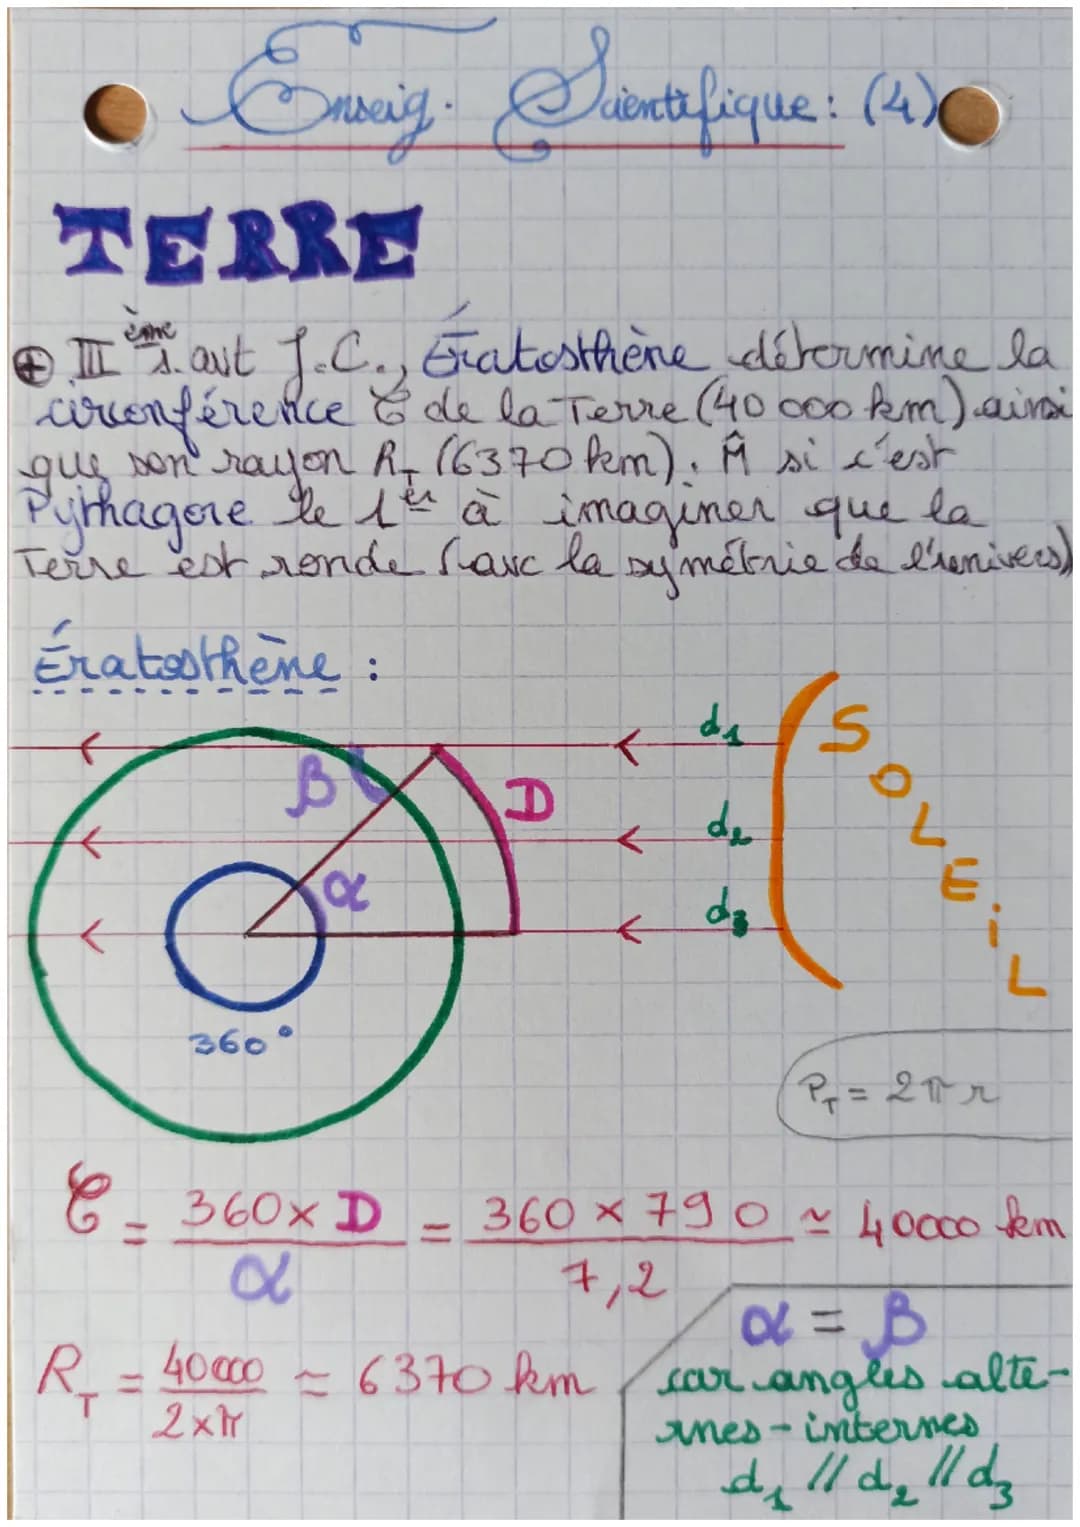 Enseig. Scientifique: (4)
TERRE
⊕ IIIème s. avt J.C., Ératosthène détermine la
circonférence C de la Terre (40 000 km) ainsi
que son rayon R_T (6370 km). M̂ si c'est
Pythagore le 1er à imaginer que la
Terre est ronde (avc la symétrie de l'univers)
Ératosthène :
d₁
SOLEiL
β
D
d₂
α
d₃
360°
P_T = 2πr
C = 360 × D / α = 360 × 790 / 7,2 ≃ 40000 km
α = β
R_T = 40000 / 2×π ≃ 6370 km
car angles alte-
rnes-internes
d₁ // d₂ // d₃